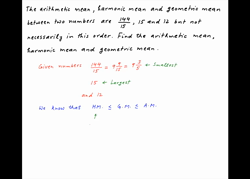 The arithmetic mean, harmonic mean and geometric mean
between two numbers are 144/15, 15 and 12 but not
necessarily in this order. Find the arithmetic mean,
harmonic mean and geometric mean.
Given numbers 144/15 = 9 9/15 = 9 3/5 ← Smallest
15 ← Largest
and 12
We know that HM. ≤ G.M. ≤ A.M.